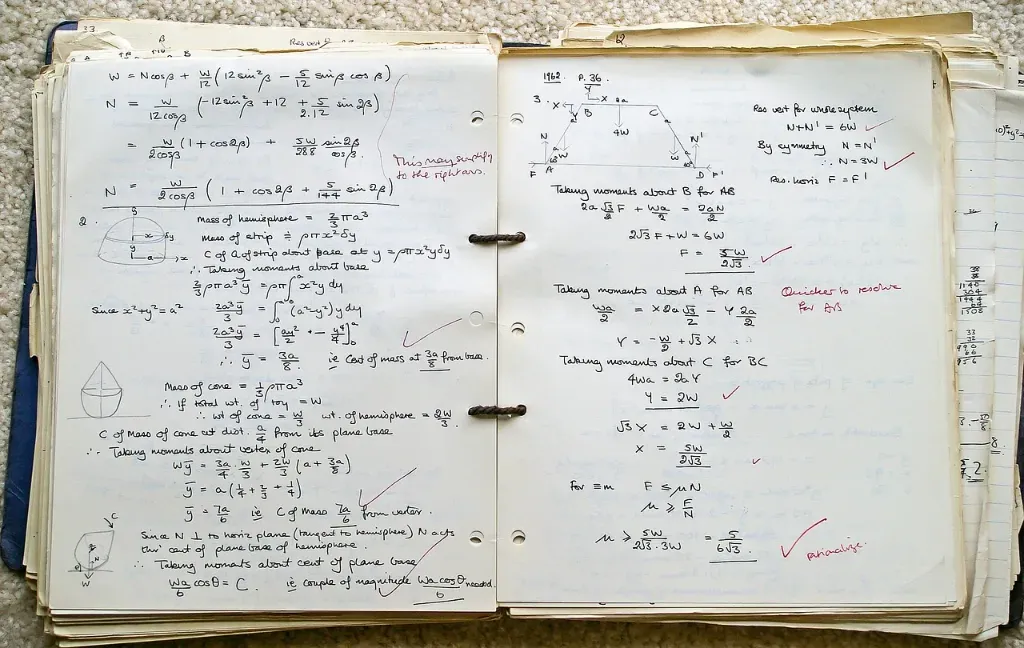 33
W = Ncosβ + W/12 (12 sin²β − 5/12 sinβ cos β)
N = W/12cosβ (-12sin²β + 12 + 5/2.12 sin 2β)
= W/2cosβ (1 + cos2β) + 5W/288 sin2β/cosβ.
This may simplify
to the right ans.
N = W/2cosβ ( 1 + cos2β + 5/144 sin2β )
2.
Mass of hemisphere = 2/3 ρπa³
Mass of strip ≐ ρπx²δy
C of G of strip about base at y = ρπx²yδy
∴ Taking moments about base
2/3 ρπa³ȳ = ρπ∫ₒᵃ x²y dy
Since x²+y²=a²
2a³ȳ/3 = ∫ₒᵃ (a²-y²)y dy
2a³ȳ/3 = [a²y²/2 - y⁴/4]ₒᵃ
∴ ȳ = 3a/8. ie Cent of mass at 3a/8 from base.
Mass of cone = 1/3 ρπa³
∴ If total wt. of toy = W
∴ wt of cone = W/3 wt. of hemisphere = 2W/3.
C of Mass of cone at dist. a/4 from its plane base
∴ Taking moments about vertex of cone
Wȳ = 3a/4 . W/3 + 2W/3 (a + 3a/8)
ȳ = a(1/4 + 2/3 + 1/4)
ȳ = 7a/6 ie C of mass 7a/6 from vertex.
Since N ⊥ to horiz plane (tangent to hemisphere) N acts
thro' cent of plane base of hemisphere.
∴ Taking moments about cent of plane base
Wa/6 cosθ = C. ie couple of magnitude Wa cosθ/6 needed.
C
N
W
12
1962. P. 36.
3.
Y
X
2a
X
B
C
4W
N
N'
W
W
F
A
D
F'
Res vert for whole system
N+N' = 6W
By symmetry N = N'
∴ N = 3W
Res. horiz F = F'
Taking moments about B for AB
2a √3/2 F + Wa/2 = 2aN/2
2√3 F + W = 6W
F = 5W/2√3.
Taking moments about A for AB
Quicker to resolve
for AB
Wa/2 = X 2a √3/2 − Y 2a/2
Y = -W/2 + √3 X
Taking moments about C for BC
4Wa = 2aY
Y = 2W
√3 X = 2W + W/2
X = 5W/2√3
For ≡m F ≤ μN
μ ≥ F/N
μ ≥ 5W/2√3.3W = 5/6√3.
rationalize.